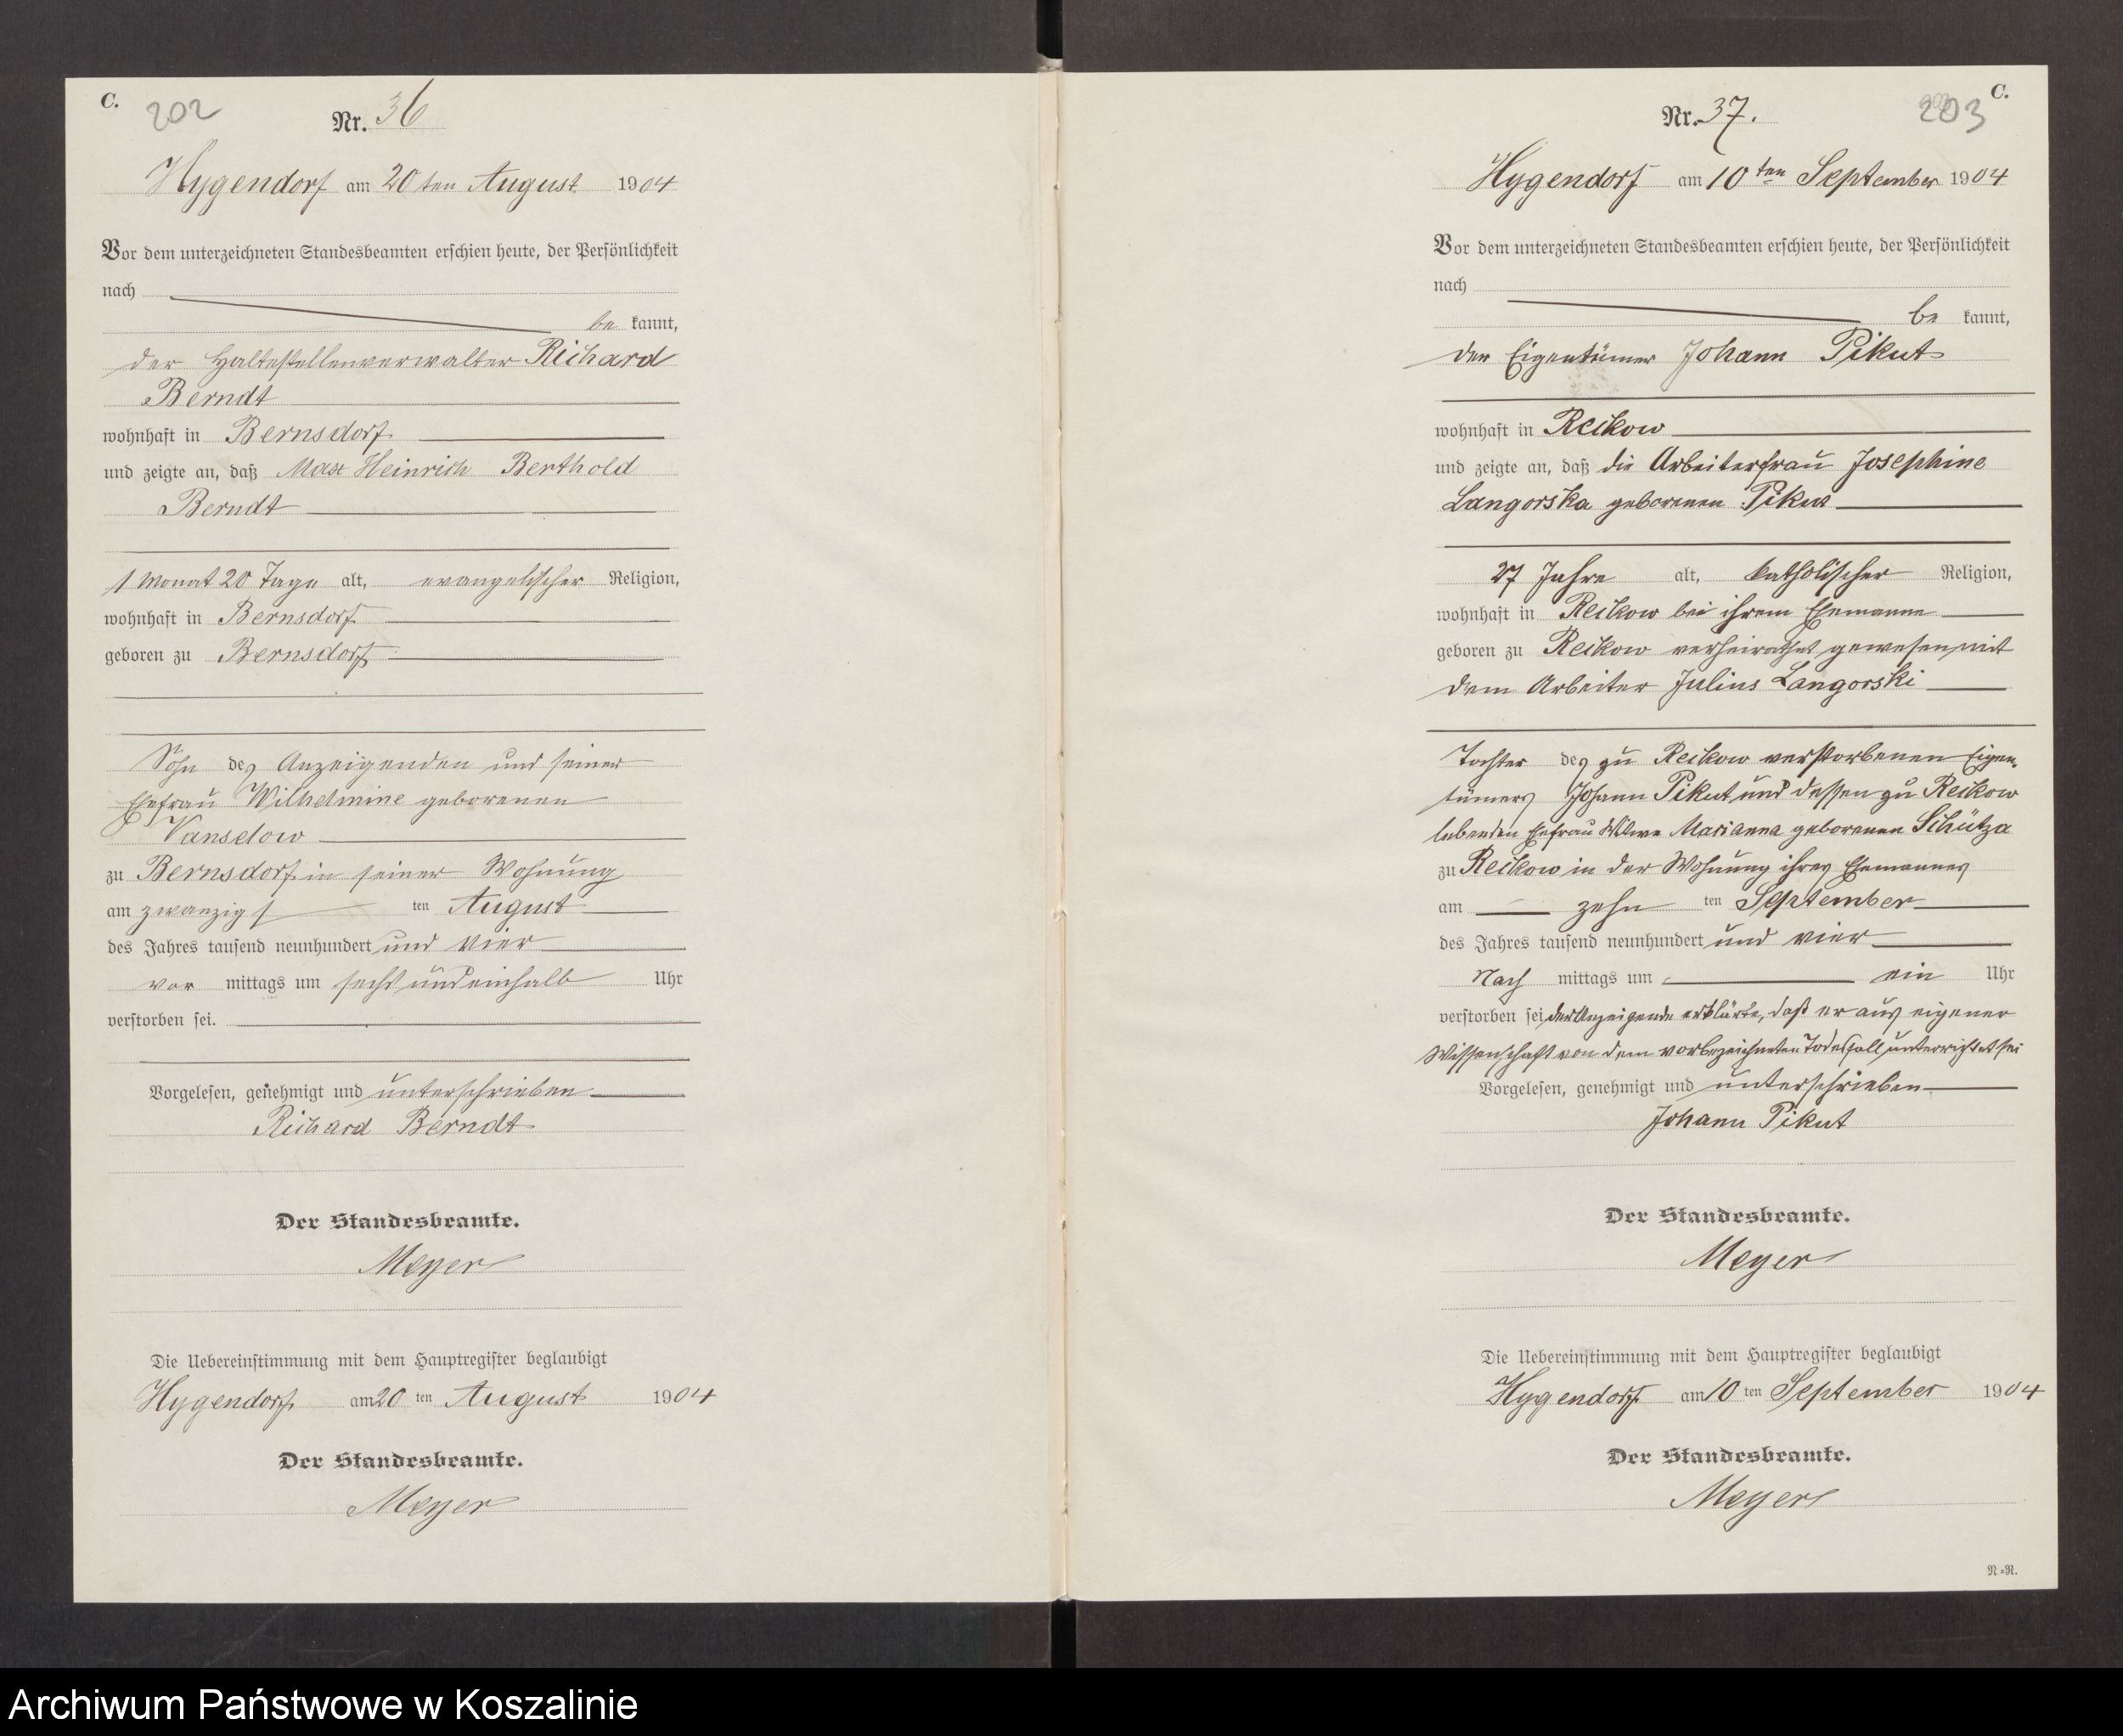 C.
202
Nr. 36
Hygendorf am 20ten August 1904
Vor dem unterzeichneten Standesbeamten erschien heute, der Persönlichkeit
nach
be kannt,
der Haltestellenverwalter Richard
Berndt
wohnhaft in Bernsdorf
und zeigte an, daß Max Heinrich Berthold
Berndt
1 Monat 20 Tage alt, evangelischer Religion,
wohnhaft in Bernsdorf
geboren zu Bernsdorf
Sohn des Anzeigenden und seiner
Ehefrau Wilhelmine geborenen
Vanselow
zu Bernsdorf in seiner Wohnung
am zwanzigsten August
des Jahres tausend neunhundert und vier
vor mittags um sechs und einhalb Uhr
verstorben sei.
Vorgelesen, genehmigt und unterschrieben
Richard Berndt
Der Standesbeamte.
Meyer
Die Uebereinstimmung mit dem Hauptregister beglaubigt
Hygendorf am 20 ten August 1904
Der Standesbeamte.
Meyer
C.
203
Nr. 37.
Hygendorf am 10ten September 1904
Vor dem unterzeichneten Standesbeamten erschien heute, der Persönlichkeit
nach
be kannt,
der Eigentümer Johann Pikut
wohnhaft in Reckow
und zeigte an, daß die Arbeiterfrau Josephine
Langorska geborenen
27 Jahre alt, katholischer Religion,
wohnhaft in Reckow bei ihrem Ehemanne
geboren zu Reckow verheirathet gewesen mit
dem Arbeiter Julius Langorski
Tochter des zu Reckow verstorbenen Eigen-
tümers Johann Pikut und dessen zu Reckow
lebenden Ehefrau Witwe Marianna geborenen Schütza
zu Reckow in der Wohnung ihres Ehemannes
am zehn ten September
des Jahres tausend neunhundert und vier
Nach mittags um ein Uhr
verstorben sei der Anzeigende erklärte, daß er aus eigener
Wissenschaft von dem vorbezeichneten Todesfall unterrichtet sei
Vorgelesen, genehmigt und unterschrieben
Johann Pikut
Der Standesbeamte.
Meyer
Die Uebereinstimmung mit dem Hauptregister beglaubigt
Hygendorf am 10 ten September 1904
Der Standesbeamte.
Meyer
R.=R.
Archiwum Państwowe w Koszalinie